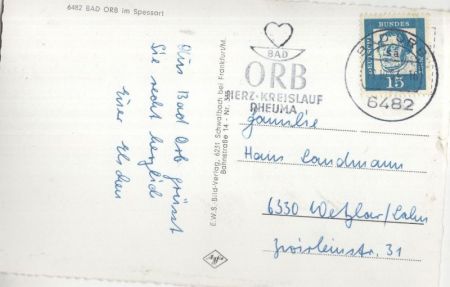 6482 BAD ORB im Spessart
Aus Bad Orb grüsst
Sie recht herzlich
E.W.S. Bild-Verlag, 6231 Schwalbach bei Frankfurt/M.
Bahnstraße 14 - Nr. 3
Agfa
BAD
ORB
HERZ-KREISLAUF
RHEUMA
DEUTSCHE
BUNDES
15
BAD ORB
6482
Familie
Hans Landmann
6330 Wetzlar/Lahn
31